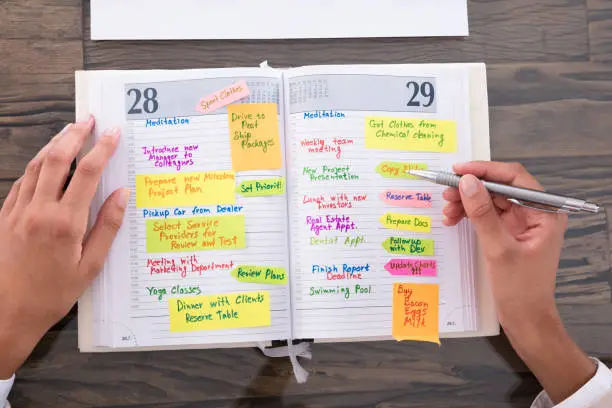 28
Sport Clothes
Meditation
Drive to
Post
Ship
Packages
Introduce new
Manager to
Colleagues
Prepare new
Project Plan
Milestone
Set Priority!
Pickup Car from Dealer
Select Service
Providers for
Review and Test
Meeting with
Marketing Department
Review Plans
Yoga Classes
Dinner with Clients
Reserve Table
29
Meditation
Get Clothes from
Chemical cleaning
Weekly team
meeting
New Project
Presentation
Lunch with new
Investors
Reserve Table
Real Estate
Agent Appt.
Prepare Docs
Dental Appt.
Followup
with Dev
Finish Report
Deadline
Update Charts
!!!
Swimming Pool
Buy
Bacon
Eggs
Milk